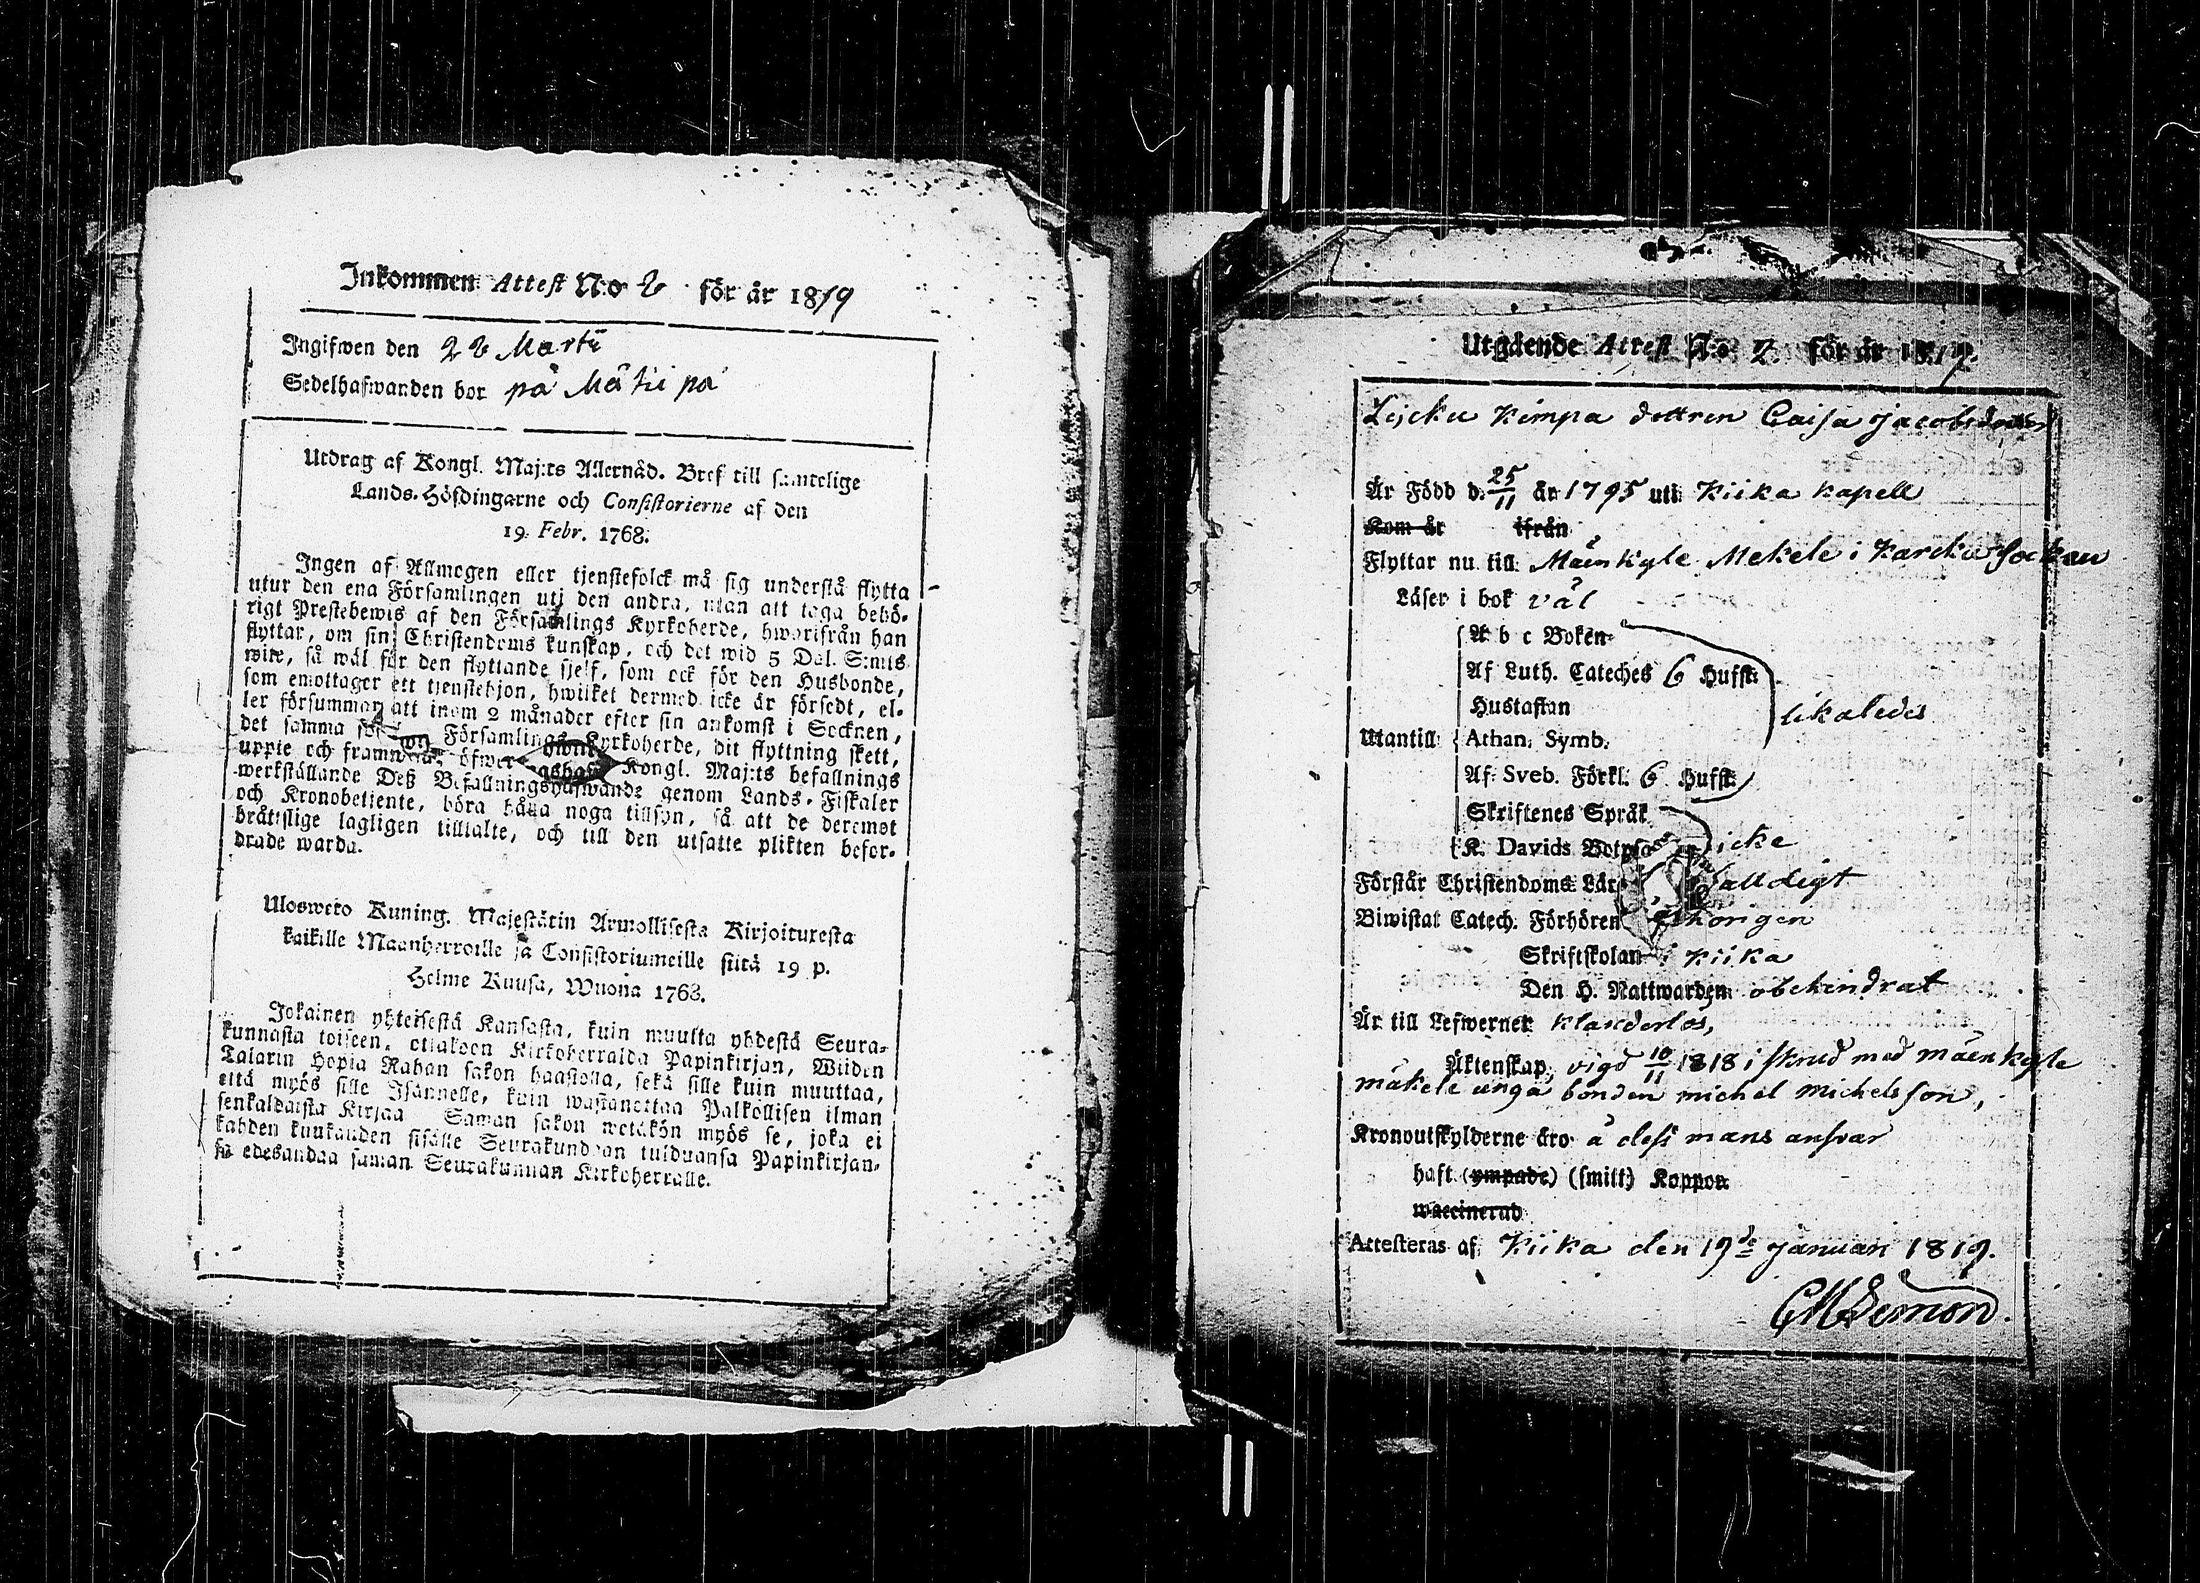 Inkommen Attest N:o 2 för år 1819
Ingifwen den 22 Martii
Sedelhafwanden bor på
Utdrag af Kongl. Maj:ts Allernåd. Bref till samtelige
Lands-Höfdingarne och Consistorierne af den
19. Febr. 1768.
Ingen af Allmogen eller tjenstefolck må sig understå flytta
utur den ena Församlingen uti den andra, utan att taga behö-
rigt Prestebewis af den Församlings Kyrkoherde, hworifrån han
flyttar, om sin Christendoms kunskap, och det wid 5 Dal. S:mts
wite, så wäl för den flyttande sjelf, som ock för den Husbonde,
som emottager ett tjenstehjon, hwilket dermed icke är försedt, el-
ler försummar att inom 2 månader efter sin ankomst i Socknen,
det samma för Församlings Kyrkoherde, dit flyttning skett,
uppte och framwisa, öfwer Kongl. Maj:ts befallnings
werkställande Deß Befallningshafwande genom Lands-Fiskaler
och Kronobetjente, böra hålla noga tillsyn, så att de deremot
bråttslige lagligen tilltalte, och till den utsatte plikten befor-
drade warda.
Ulosweto Kuning. Majestätin Armollisesta Kirjoituresta
kaikille Maanherroille ja Consistoriumeille siitä 19 p.
Helme Kuusa, Wuona 1768.
Jokainen yhteisestä Kansasta, kuin muutta yhdestä Seura-
kunnasta toiseen, ottakoon Kirkoherralda Papinkirjan, Wiiden
Talarin Hopia Rahan sakon haastolla, sekä sille kuin muuttaa,
että myös sille Isännelle, kuin wastanottaa Palkollisen ilman
senkaldaista Kirjaa Saman sakon wetäkön myös se, joka ei
kahden kuukauden sisälle Seurakundaan tulduansa Papinkirjan-
sa edesandaa saman Seurakunnan Kirkoherralle.
Utgående Attest N:o 2. för år 1819.
Kimpa dottren Caisa Jacobsdotter
Är Född d. 25/11 år 1795 uti Kiika Kapell
Kom år ifrån
Flyttar nu till Mäenkyle Mekele i Karcku Socken
Läser i bok väl
A b c Boken
Af Luth. Cateches 6 Hufst.
Hustaflan likaledes
Utantill Athan. Symb.
Af Sveb. Förkl. 6 Hufst.
Skriftenes Språk
K. Davids Botpsa icke
Förstår Christendoms Lär
Biwistat Catech. Förhören
Skriftskolan i Kiika
Den H. Nattwarden obehindrat
Är till Lefwernet klanderlös,
Äktenskap, vigd 10/11 1818 i Skrud med mäenkyle
mäkele unga bonden michel michelsson,
Kronoutskylderne äro å dess mans ansvar
haft (ympade) (smitt) Koppor
waccinerad
Attesteras af Kiika den 19de Januari 1819.